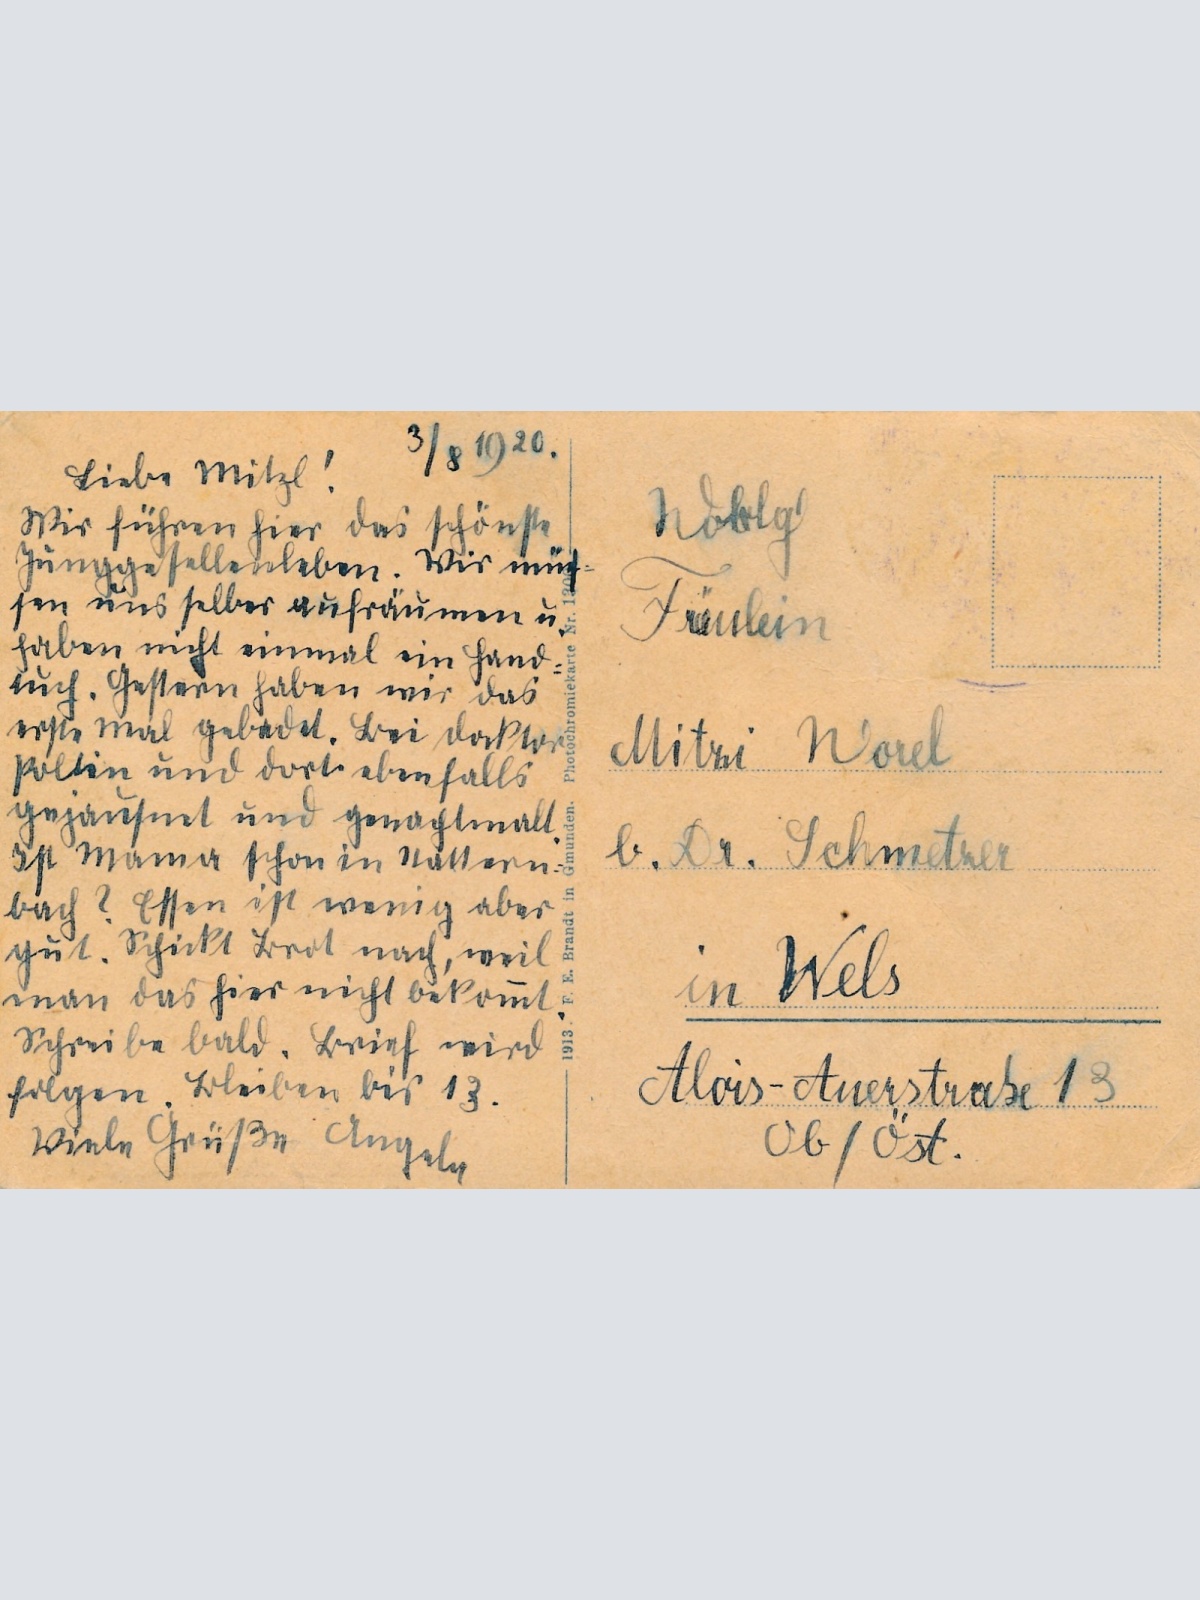 3/8 1920.
Liebe Mitzl!
Wir führen hier das schönste
Junggesellenleben. Wir müs-
sen uns selber aufräumen u.
haben nicht einmal ein Hand-
tuch. Gestern haben wir das
erste Mal gebadet. Bei Doktor
Poltin und dort ebenfalls
gejausnet und genachtmalt.
Ist Mama schon in Nattern-
bach? Essen ist wenig aber
gut. Schickt Brot nach, weil
man das hier nicht bekom̅t.
Schreibe bald. Brief wird
folgen. Bleiben bis 13.
Viele Grüße Angela
1913. F. E. Brandt in Gmunden. Photochromiekarte Nr.
Fräulein
Mitzi Worel
b. Dr. Schmetzer
in Wels
Alois-Auerstraße 13
Ob/Öst.